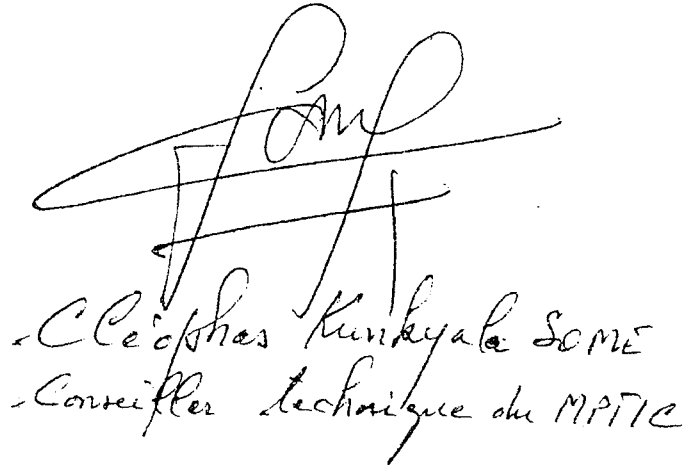 - Cléophas Kunkyala SOMÉ
- Conseiller technique du MPTIC